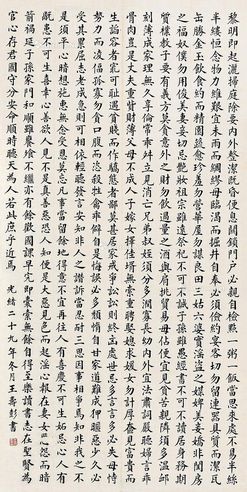 黎明即起灑掃庭除要內外整潔既昏便息關鎖門戶必親自檢點一粥一飯當思來處不易半絲
半縷恆念物力維艱宜未雨而綢繆毋臨渴而掘井自奉必須儉約宴客切勿留連器具質而潔瓦
缶勝金玉飲食約而精園蔬愈珍饈勿營華屋勿謀良田三姑六婆實淫盜之媒婢美妾嬌非閨房
之福奴僕勿用俊美妻妾切忌豔妝祖宗雖遠祭祀不可不誠子孫雖愚經書不可不讀居身務期
質樸教子要有義方莫貪意外之財勿飲過量之酒與肩挑貿易毋佔便宜見貧苦親鄰須多溫卹
刻薄成家理無久享倫常乖舛立見消亡兄弟叔姪須分多潤寡長幼內外宜法肅詞嚴聽婦言乖
骨肉豈是丈夫重貲財薄父母不成人子嫁女擇佳婿毋索重聘娶媳求淑女勿計厚奩見富貴而
生諂容者最可恥遇貧賤而作驕態者賤莫甚居家戒爭訟訟則終凶處世戒多言言多必失毋恃
勢力而凌逼孤寡勿貪口腹而恣殺牲禽乖僻自是悔誤必多頹惰自甘家道難成狎暱惡少久必
受其累屈志老成急則可相依輕聽發言安知非人之譖訴當忍耐三思因事相爭焉知非我之不
是須平心暗想施惠無念受恩莫忘凡事當留餘地得意不宜再往人有喜慶不可生妒忌心人有
禍患不可生喜幸心善欲人見不是真善惡恐人知便是大惡見色而起淫心報在妻女匿怨而用暗
箭禍延子孫家門和順雖饔飧不繼亦有餘歡國課早完即囊橐無餘自得至樂讀書志在聖賢為
官心存君國守分安命順時聽天為人若此庶乎近焉 光緒二十九年冬月王壽彭書